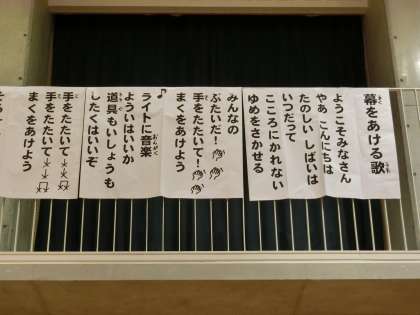 幕をあける歌
ようこそみなさん
やあ こんにちは
たのしい しばいは
いつだって
こころにかれない
ゆめをさかせる
みんなの
ぶたいだ!
手をたたいて!
まくをあけよう
ライトに音楽
よういはいいか
道具もいしょうも
したくはいいぞ
手をたたいて
手をたたいて
まくをあけよう